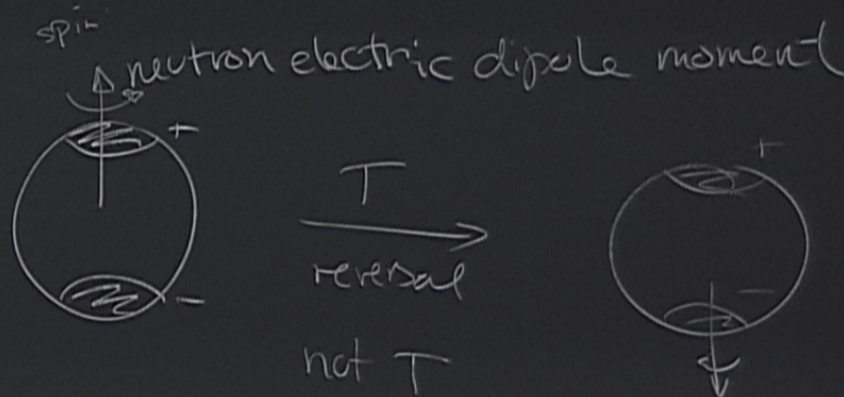 spin
neutron electric dipole moment
+
-
T
reversal
not T
+
-